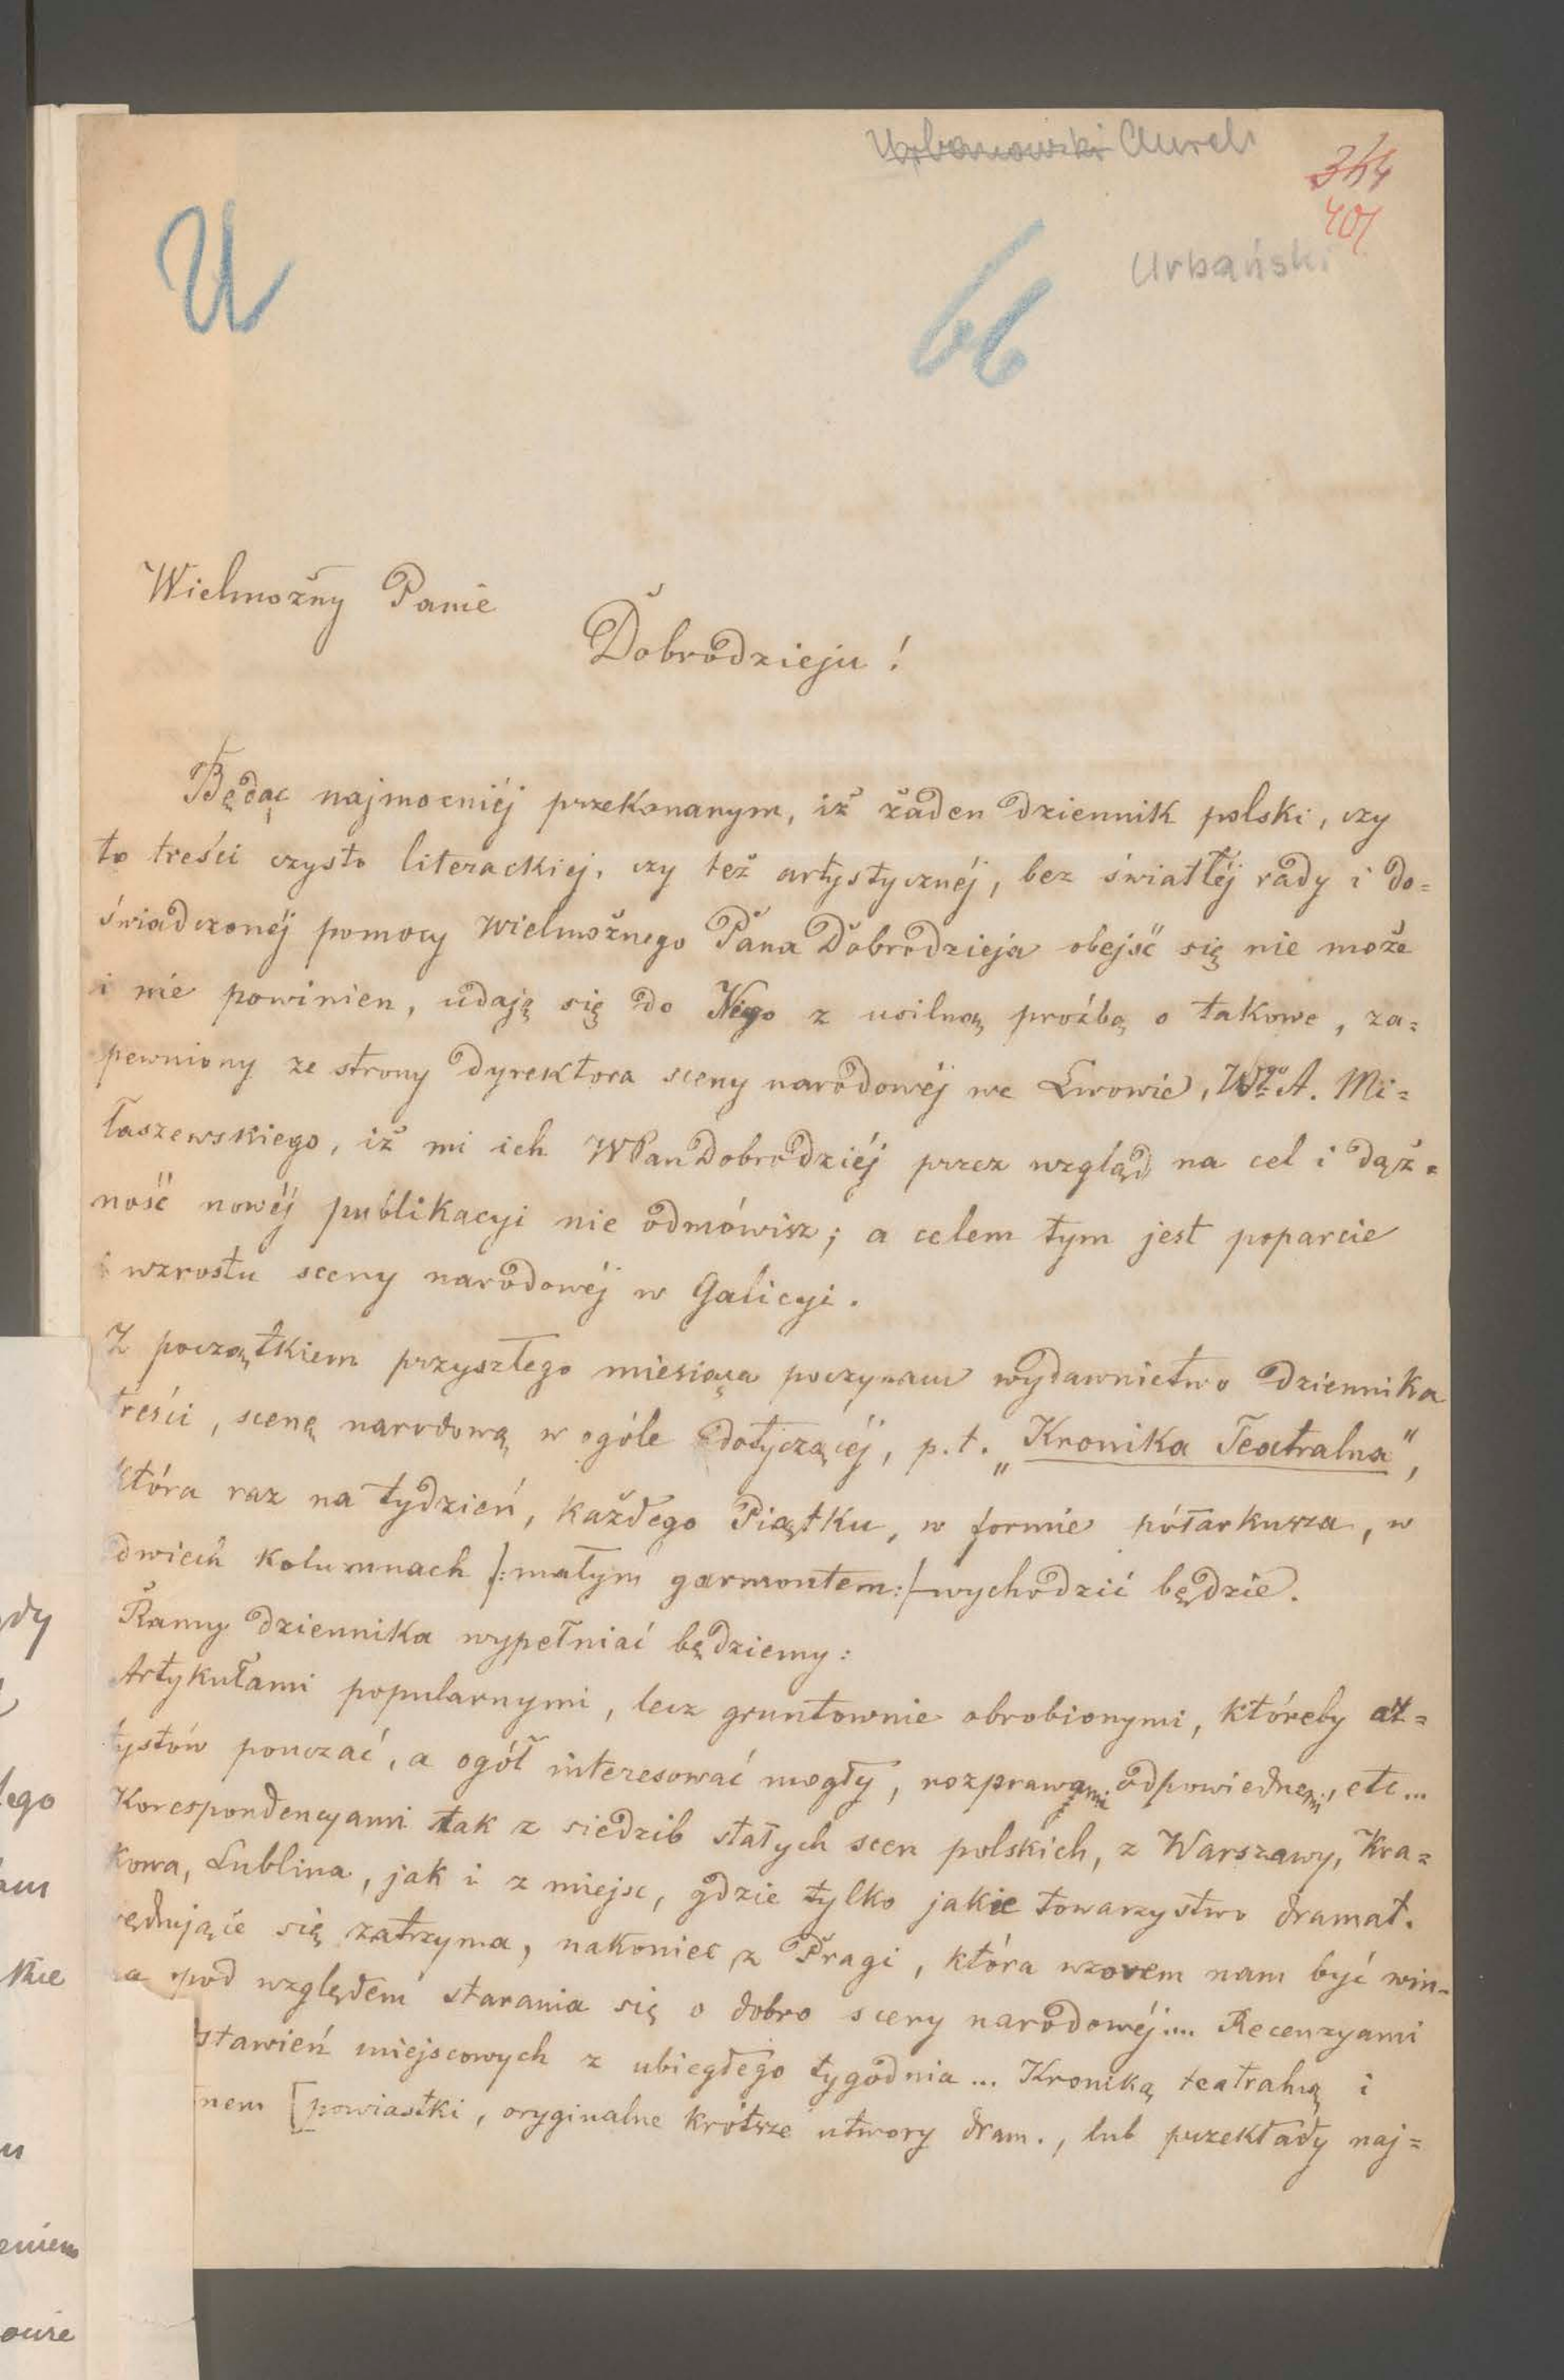 Urbanowski Aurel
344
401
U
66
Urbański
Wielmożny Panie
Dobrodzieju!
Będąc najmocniéj przekonanym, iż żaden dziennik polski, czy
to treści czysto literackiéj, czy też artystycznéj, bez światłéj rady i do=
świadczonéj pomocy Wielmożnego Pana Dobrodzieja obejść się nie może
i nie powinien, udaję się do Niego z usilną proźbą o takowe, za=
pewniony ze strony dyrektora sceny narodowéj we Lwowie, Wgo A. Mi=
łaszewskiego, iż mi ich WPan Dobrodziéj przez wzgląd na cel i dąż=
ność nowéj publikacyi nie odmówisz; a celem tym jest poparcie
i wzrostu sceny narodowéj w Galicyi.
Z początkiem przyszłego miesiąca poczynam wydawnictwo dziennika
treści, scenę narodową w ogóle dotyczącéj, p.t. „Kronika Teatralna",
która raz na tydzień, każdego Piątku, w formie półarkusza, w
dwiech kolumnach /:małym garmontem:/ wychodzić będzie.
Ramy dziennika wypełniać będziemy:
Artykułami popularnymi, lecz gruntownie obrobionymi, któreby ar=
tystów pouczać, a ogół interesować mogły, rozprawami odpowiednemi, etc...
Korespondencyami tak z siedzib stałych scen polskich, z Warszawy, Kra=
kowa, Lublina, jak i z miejsc, gdzie tylko jakie towarzystwo dramat.
wędrujące się zatrzyma, nakoniec z Pragi, która wzorem nam być win-
na pod względem starania się o dobro sceny narodowéj.... Recenzyami
stawień miejscowych z ubiegłego tygodnia... Kroniką teatralną i
nem [powiastki, oryginalne krótsze utwory dram., lub przekłady naj=